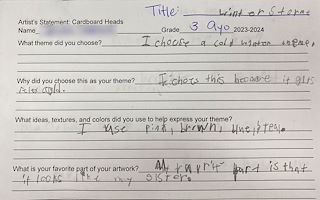 Title: Winter Storm
Artist's Statement: Cardboard Heads
Name Grade 3 Ayo 2023-2024
What theme did you choose? I choose a cold
Why did you choose this as your theme? I chors this because it gets
cold.
What ideas, textures, and colors did you use to help express your theme?
I use pink, brown, blue, teal.
What is your favorite part of your artwork? My favrit part is that
it looks like my sister.